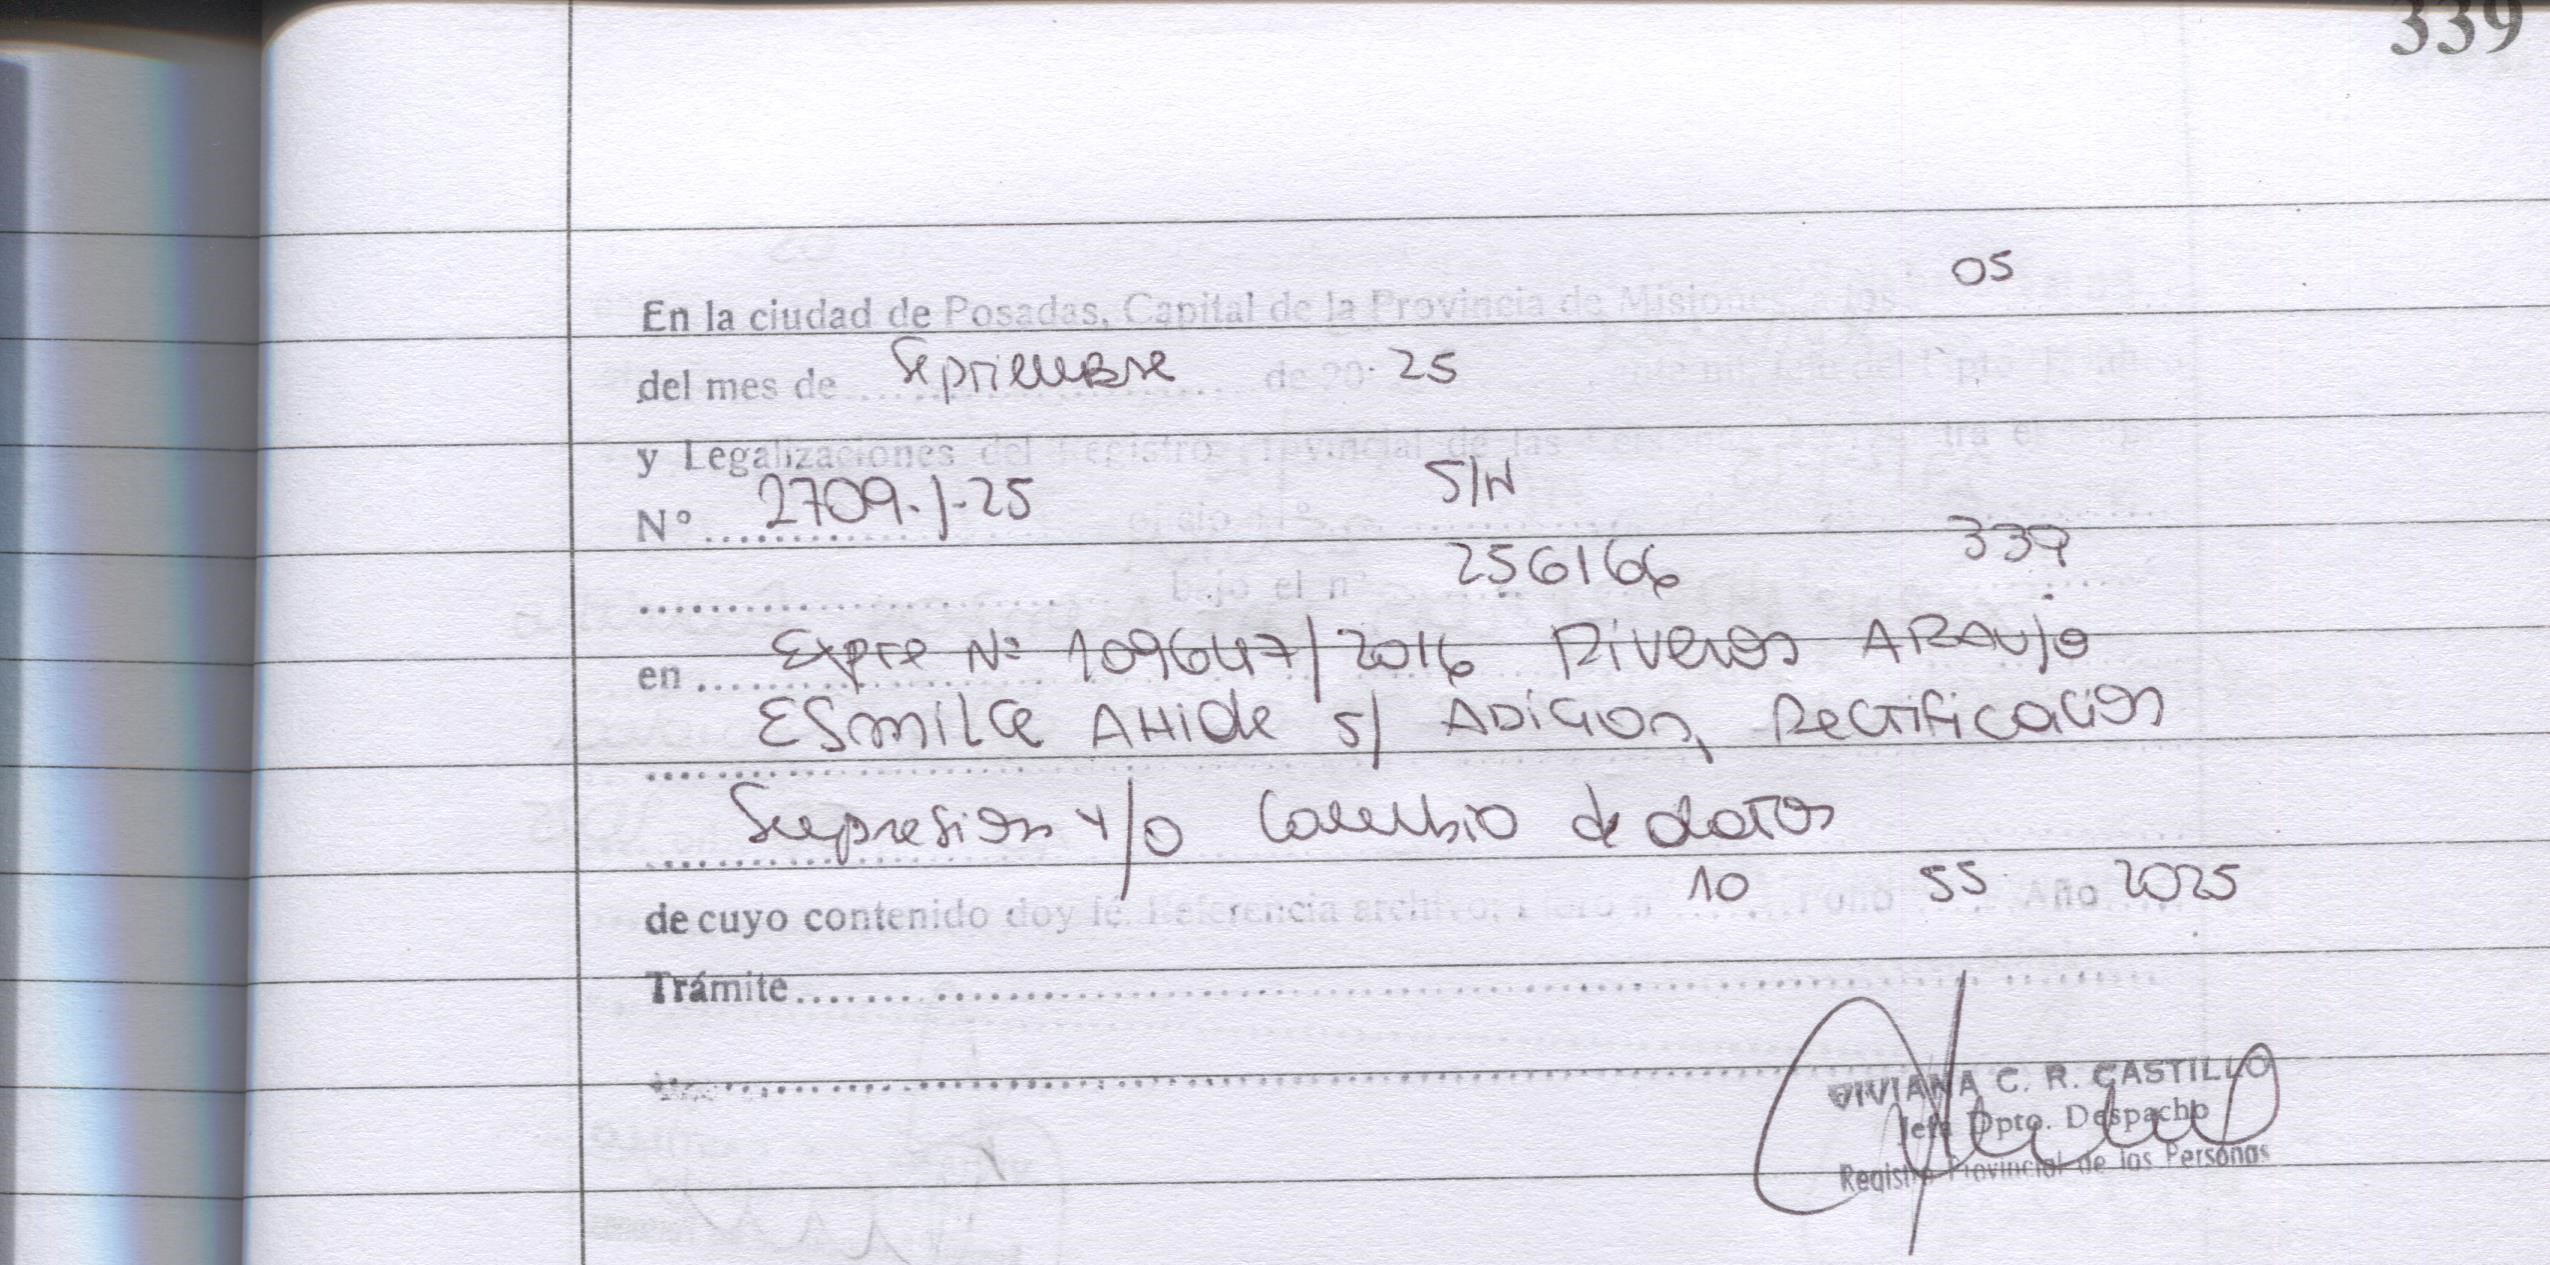 339
05
En la ciudad de Posadas, Capital de la Provincia de Misiones, a los
del mes de Septiembre de 20 25
y Legalizaciones del Registro Provincial de las
N° 2709-J-25 oficio n° S/N
bajo el n° 256166 339
en Expte Nº 109647/2016 Riveros ARAUJO
ESmilce AHide s/ ADiCion, Rectificacion
Supresion y/o Cambio de datos
10 55 2025
de cuyo contenido doy fé. Referencia archivo, Libro n° Folio Año
Trámite
VIVIANA C. R. CASTILLO
Jefa Dpto. Despacho
Registro Provincial de las Personas